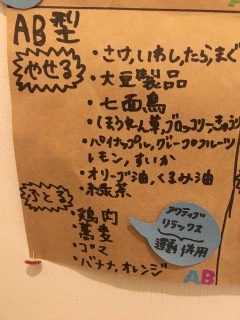 AB型
やせる
・さけ,いわし,たら,まぐ
・大豆製品
・七面鳥
・ほうれん草,ブロッコリー,きゅうり
・パイナップル,グレープフルーツ
レモン,すいか
・オリーブ油,くるみ油
・緑茶
ふとる
・鶏肉
・蕎麦
・ゴマ
・バナナ,オレンジ
アクティブ
リラックス
運動併用
AB